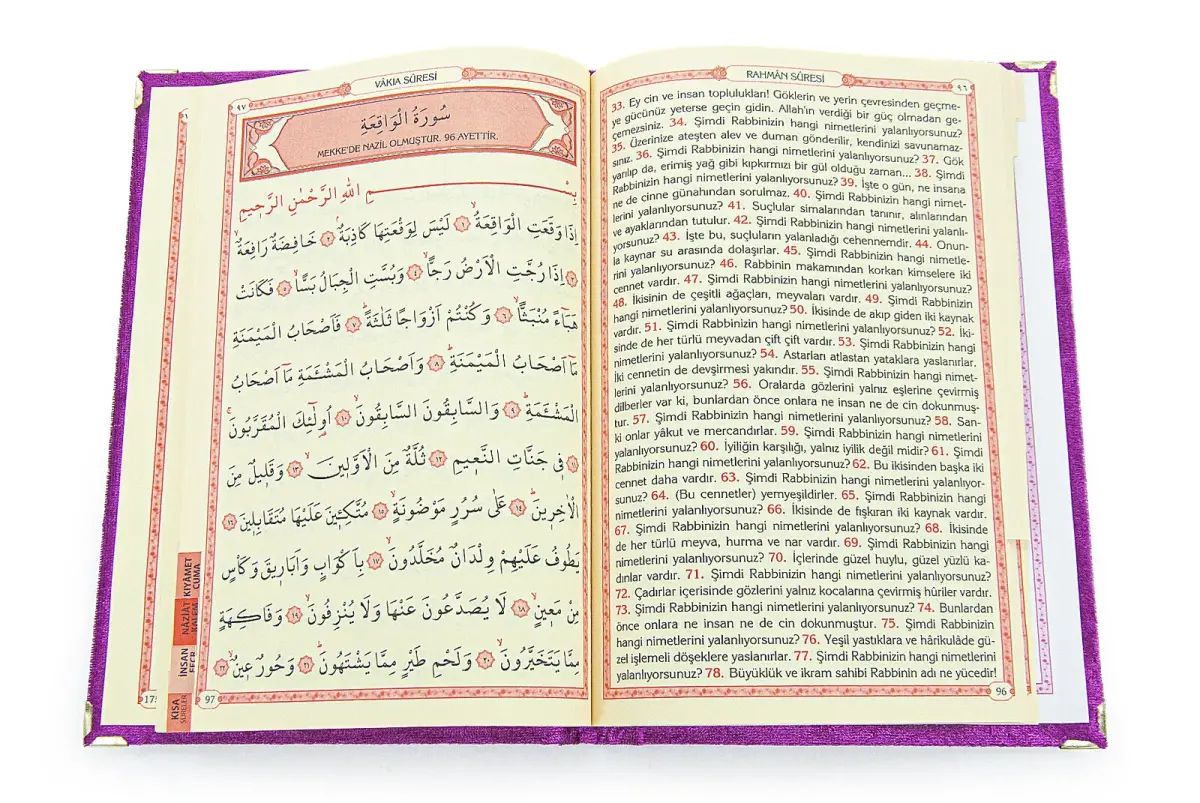 RAHMÂN SÛRESİ
٩٦
33. Ey cin ve insan toplulukları! Göklerin ve yerin çevresinden geçme-
ye gücünüz yeterse geçin gidin. Allah'ın verdiği bir güç olmadan ge-
çemezsiniz. 34. Şimdi Rabbinizin hangi nimetlerini yalanlıyorsunuz?
35. Üzerinize ateşten alev ve duman gönderilir, kendinizi savunamaz-
sınız. 36. Şimdi Rabbinizin hangi nimetlerini yalanlıyorsunuz? 37. Gök
yarılıp da, erimiş yağ gibi kıpkırmızı bir gül olduğu zaman... 38. Şimdi
Rabbinizin hangi nimetlerini yalanlıyorsunuz? 39. İşte o gün, ne insana
ne de cinne günahından sorulmaz. 40. Şimdi Rabbinizin hangi nimet-
lerini yalanlıyorsunuz? 41. Suçlular simalarından tanınır, alınlarından
ve ayaklarından tutulur. 42. Şimdi Rabbinizin hangi nimetlerini yalanlı-
yorsunuz? 43. İşte bu, suçluların yalanladığı cehennemdir. 44. Onun-
la kaynar su arasında dolaşırlar. 45. Şimdi Rabbinizin hangi nimetle-
rini yalanlıyorsunuz? 46. Rabbinin makamından korkan kimselere iki
cennet vardır. 47. Şimdi Rabbinizin hangi nimetlerini yalanlıyorsunuz?
48. İkisinin de çeşitli ağaçları, meyvaları vardır. 49. Şimdi Rabbinizin
hangi nimetlerini yalanlıyorsunuz? 50. İkisinde de akıp giden iki kaynak
vardır. 51. Şimdi Rabbinizin hangi nimetlerini yalanlıyorsunuz? 52. İki-
sinde de her türlü meyvadan çift çift vardır. 53. Şimdi Rabbinizin hangi
nimetlerini yalanlıyorsunuz? 54. Astarları atlastan yataklara yaslanırlar.
İki cennetin de devşirmesi yakındır. 55. Şimdi Rabbinizin hangi nimet-
lerini yalanlıyorsunuz? 56. Oralarda gözlerini yalnız eşlerine çevirmiş
dilberler var ki, bunlardan önce onlara ne insan ne de cin dokunmuş-
tur. 57. Şimdi Rabbinizin hangi nimetlerini yalanlıyorsunuz? 58. San-
ki onlar yâkut ve mercandırlar. 59. Şimdi Rabbinizin hangi nimetlerini
yalanlıyorsunuz? 60. İyiliğin karşılığı, yalnız iyilik değil midir? 61. Şimdi
Rabbinizin hangi nimetlerini yalanlıyorsunuz? 62. Bu ikisinden başka iki
cennet daha vardır. 63. Şimdi Rabbinizin hangi nimetlerini yalanlıyor-
sunuz? 64. (Bu cennetler) yemyeşildirler. 65. Şimdi Rabbinizin hangi
nimetlerini yalanlıyorsunuz? 66. İkisinde de fışkıran iki kaynak vardır.
67. Şimdi Rabbinizin hangi nimetlerini yalanlıyorsunuz? 68. İkisinde
de her türlü meyva, hurma ve nar vardır. 69. Şimdi Rabbinizin hangi
nimetlerini yalanlıyorsunuz? 70. İçlerinde güzel huylu, güzel yüzlü ka-
dınlar vardır. 71. Şimdi Rabbinizin hangi nimetlerini yalanlıyorsunuz?
72. Çadırlar içerisinde gözlerini yalnız kocalarına çevirmiş hûriler vardır.
73. Şimdi Rabbinizin hangi nimetlerini yalanlıyorsunuz? 74. Bunlardan
önce onlara ne insan ne de cin dokunmuştur. 75. Şimdi Rabbinizin
hangi nimetlerini yalanlıyorsunuz? 76. Yeşil yastıklara ve hârikulâde gü-
zel işlemeli döşeklere yaslanırlar. 77. Şimdi Rabbinizin hangi nimetlerini
yalanlıyorsunuz? 78. Büyüklük ve ikram sahibi Rabbinin adı ne yücedir!
96
٩٧
VÂKIA SÛRESİ
سُورَةُ الْوَاقِعَةِ
MEKKE'DE NAZİL OLMUŞTUR. 96 AYETTİR.
بِسْمِ اللّٰهِ الرَّحْمٰنِ الرَّحِيمِ
اِذَا وَقَعَتِ الْوَاقِعَةُۙ ﴿١﴾ لَيْسَ لِوَقْعَتِهَا كَاذِبَةٌۢ ﴿٢﴾ خَافِضَةٌ رَافِعَةٌۙ
﴿٣﴾ اِذَا رُجَّتِ الْاَرْضُ رَجًّاۙ ﴿٤﴾ وَبُسَّتِ الْجِبَالُ بَسًّاۙ ﴿٥﴾ فَكَانَتْ
هَبَٓاءً مُنْبَثًّاۙ ﴿٦﴾ وَكُنْتُمْ اَزْوَاجًا ثَلٰثَةًۜ ﴿٧﴾ فَاَصْحَابُ الْمَيْمَنَةِ
مَٓا اَصْحَابُ الْمَيْمَنَةِۜ ﴿٨﴾ وَاَصْحَابُ الْمَشْـَٔمَةِ مَٓا اَصْحَابُ
الْمَشْـَٔمَةِۜ ﴿٩﴾ وَالسَّابِقُونَ السَّابِقُونَۙ ﴿١٠﴾ اُو۬لٰٓئِكَ الْمُقَرَّبُونَۚ
﴿١١﴾ ف۪ي جَنَّاتِ النَّع۪يمِ ﴿١٢﴾ ثُلَّةٌ مِنَ الْاَوَّل۪ينَۙ ﴿١٣﴾ وَقَل۪يلٌ مِنَ
الْاٰخِر۪ينَۜ ﴿١٤﴾ عَلٰى سُرُرٍ مَوْضُونَةٍۙ ﴿١٥﴾ مُتَّكِـ۪ٔينَ عَلَيْهَا مُتَقَابِل۪ينَ ﴿١٦﴾
يَطُوفُ عَلَيْهِمْ وِلْدَانٌ مُخَلَّدُونَۙ ﴿١٧﴾ بِاَكْوَابٍ وَاَبَار۪يقَ وَكَأْسٍ
مِنْ مَع۪ينٍۙ ﴿١٨﴾ لَا يُصَدَّعُونَ عَنْهَا وَلَا يُنْزِفُونَۙ ﴿١٩﴾ وَفَاكِهَةٍ
مِمَّا يَتَخَيَّرُونَۙ ﴿٢٠﴾ وَلَحْمِ طَيْرٍ مِمَّا يَشْتَهُونَۜ ﴿٢١﴾ وَحُورٌ ع۪ينٌۙ ﴿٢٢﴾
97
175
KIYÂMET
CUMA
NÂZİÂT
İNSAN
FECR
KISA
SÛRELER